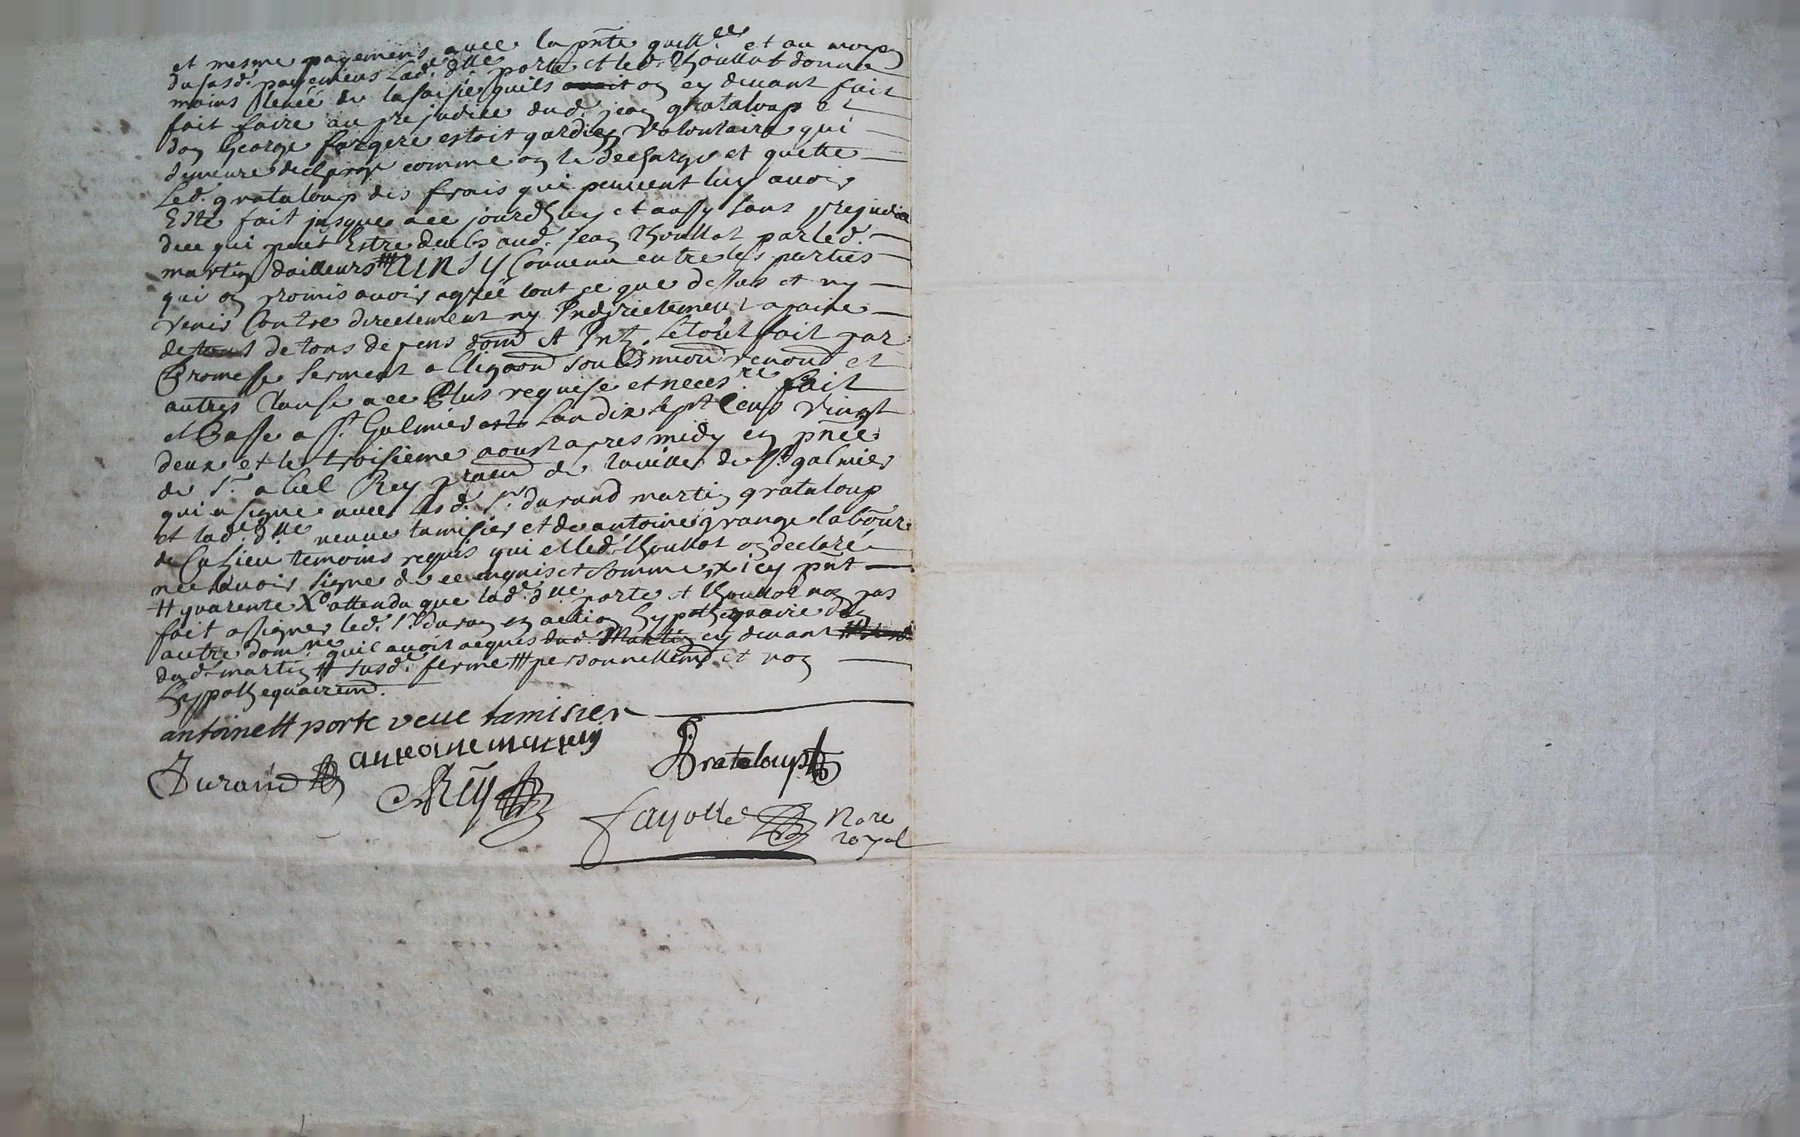 et mesme payement avec la pnte quitt.ce et au moyen
du susd. payemens lad. dlle porte et led. Thoullot donne
mains levée de la saisie quils on cy devant fait
fait faire au prejudice dud. jean grataloup et
don George fargere estoit gardien volontaire qui
demeure decharge comme on le decharge et quitte
Led. grataloup des frais qui peuvent luy avoir
Esté fait jusque a ce jourdhuy et aussy sans prejudice
de ce qui peut Estre deub aud. jean Thoullot par led.
martin dailleurs # AINSY Convenu entre les parties
qui on promis avoir agréé tout ce que dessus et ny
venir Contre directement ny Indirectement a paine
de tous depens dom et Int. Le tout fait par
Promesse serment obligaon soubmion renonон et
autres Clause a ce Plus requise et neces.re fait
et Passe a St. Galmier Lan dix sept Cens vingt
deux et le troisieme aoust apres midy en pnce
de Sr. abel Rey praen de la ville de St. galmier
qui a signe avec led. Sr. durand martin grataloup
et lad. dlle veuve tamisier et de antoine grange laboure
de Cuzieu temoins requis qui et led. Thoullot on declaré
ne scavoir signe de ce enquis et somme x icy pnt
# quarente X attendu que lad. dlle porte et Thoullot non pas
fait assigner led. Sr. duran en action hypothequaire des
autre domnes quil avoit acquis cy devant
dud. martin # susd. ferme # personnellemt et non
hypothequairemt.
antoinett porte veue tamisier
antoine martin
Durand Grataloup
Rey
fayolle Nore
royal